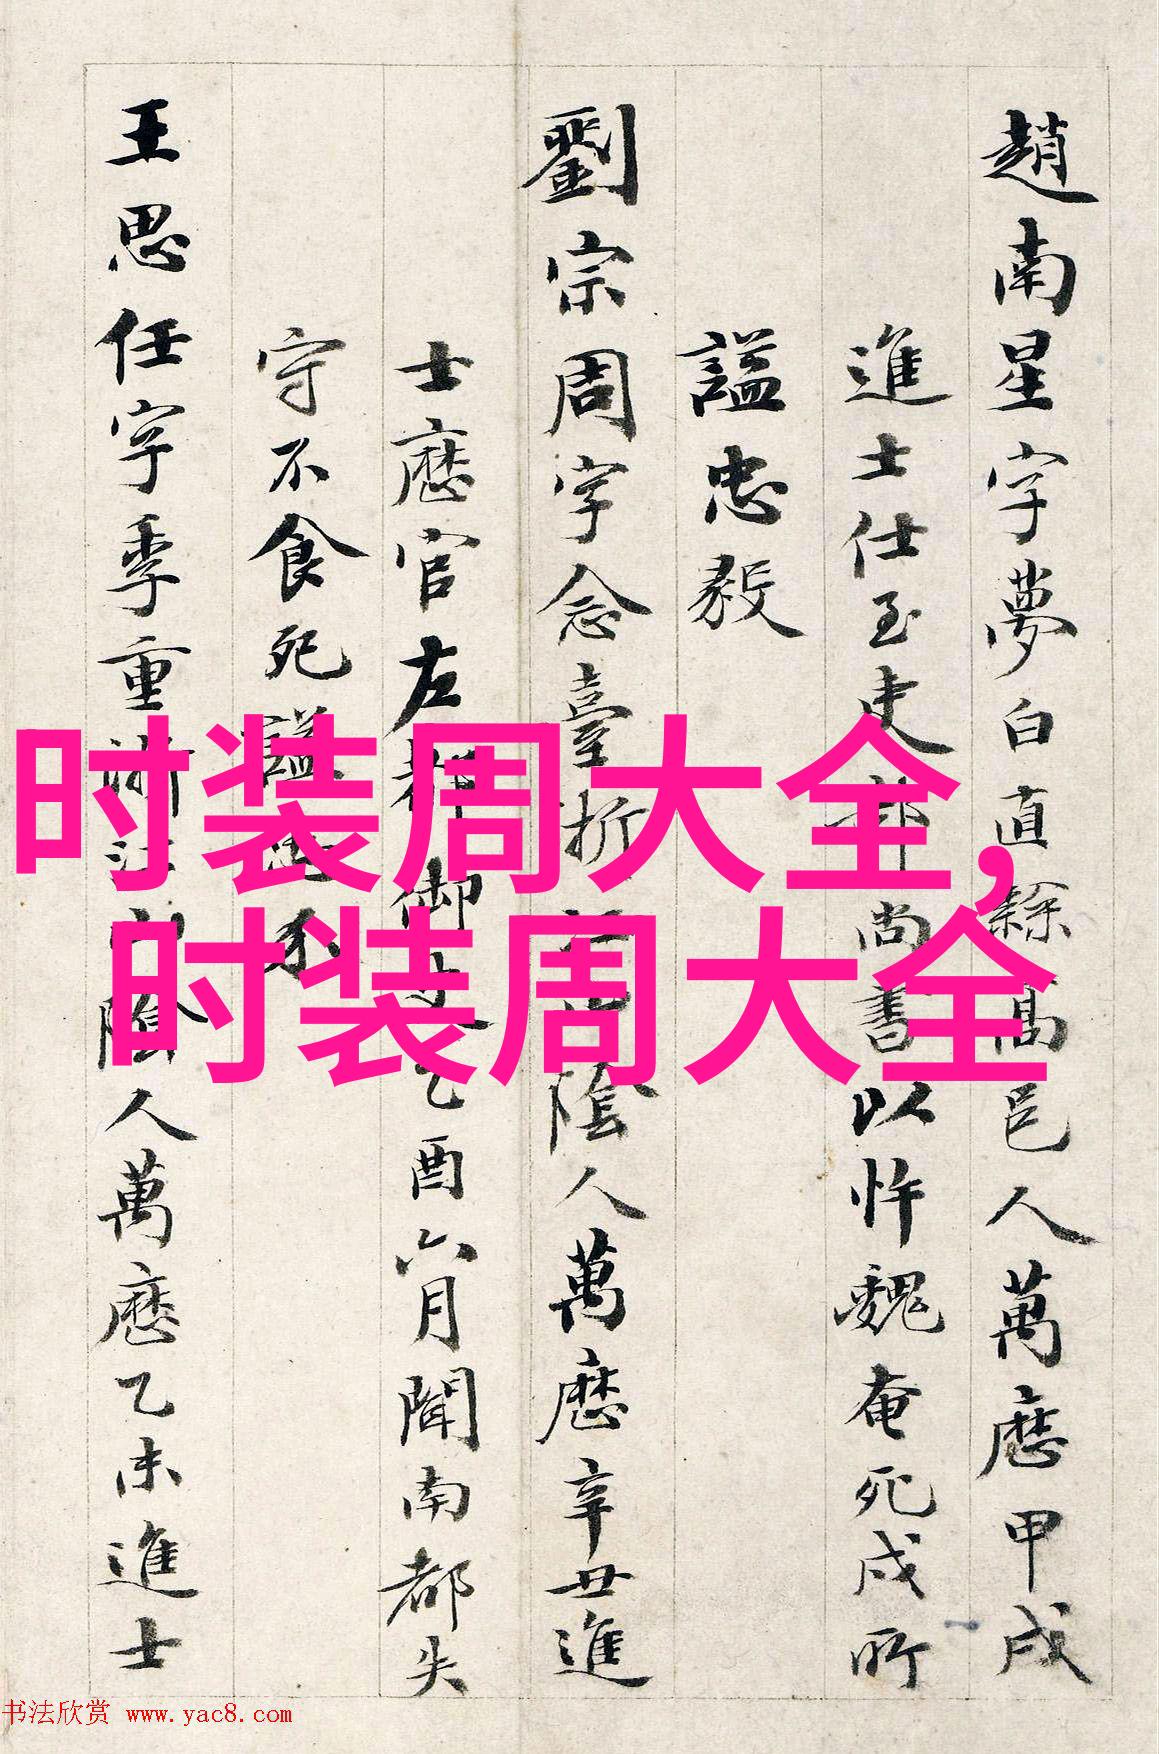 趙南星字夢白直隸高邑人萬曆甲戌
進士仕至吏部尚書以忤魏奄死戍所
謚忠毅
劉宗周字念臺浙江山陰人萬曆辛丑進
士歷官左都御史乙酉六月聞南都失
守不食死謚
王思任字季重浙江山陰人萬曆乙未進士
时装周大全,
时装周大全
书法欣赏 www.yac8.com